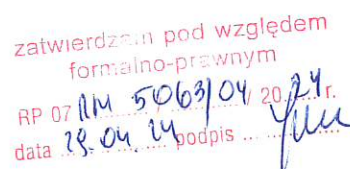 zatwierdzam pod względem
formalno-prawnym
RP 07 RM 5063/04/ 2024 r.
data 29.04.24 podpis